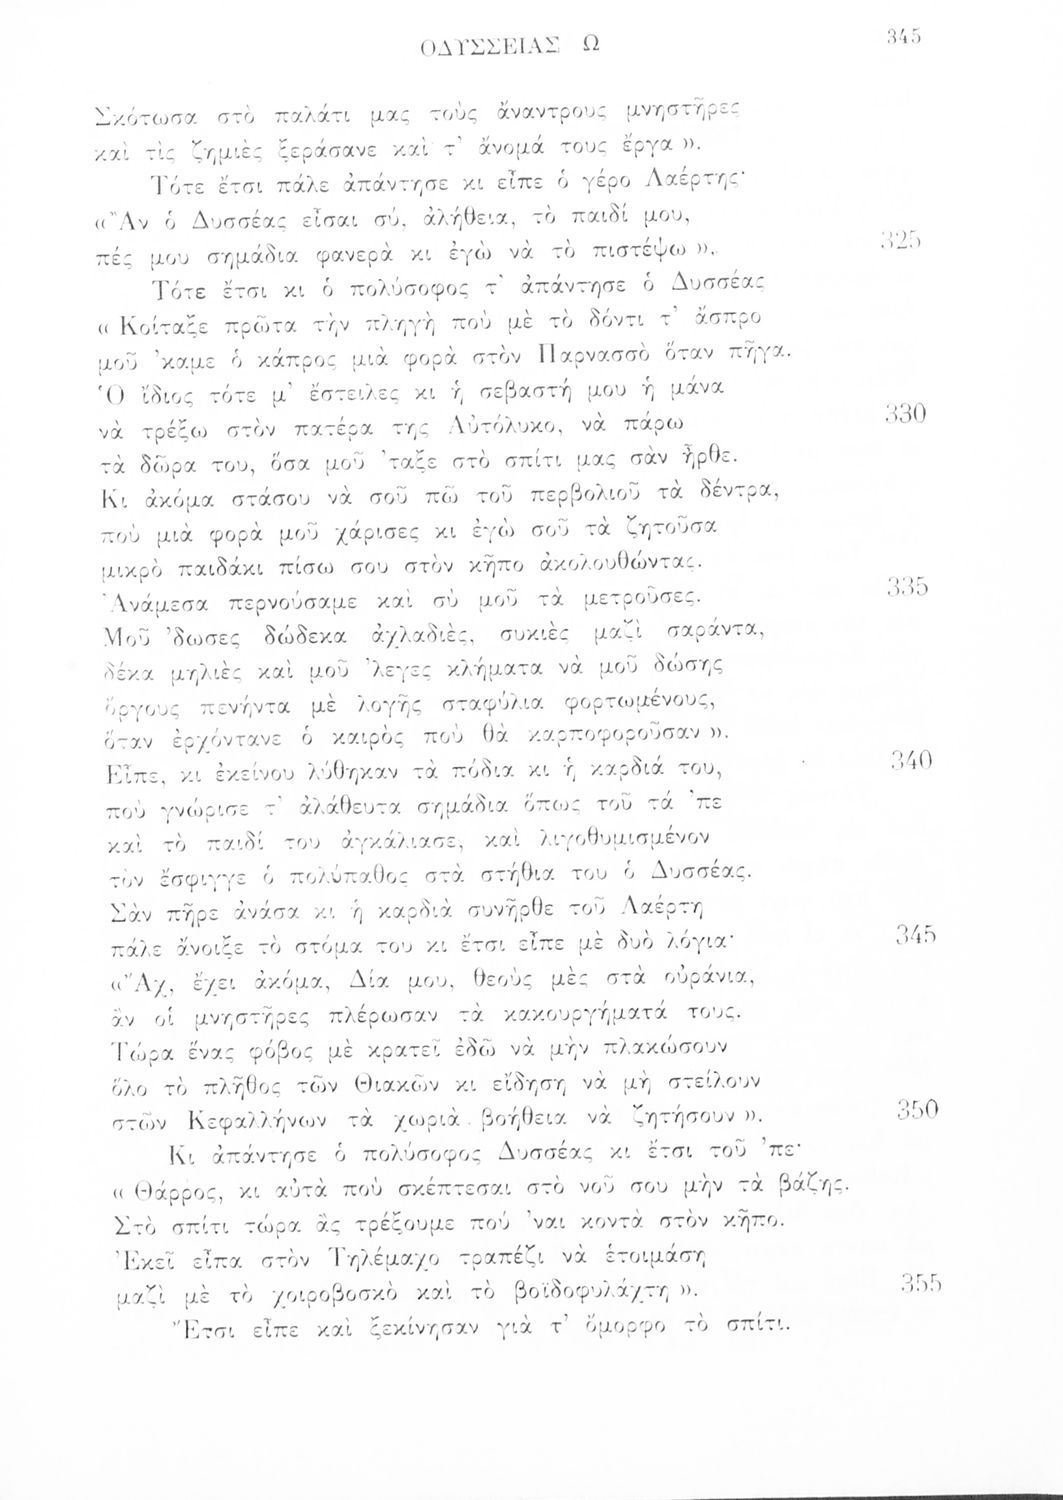 ΟΔΥΣΣΕΙΑΣ Ω 345
Σκότωσα στὸ παλάτι μας τοὺς ἄναντρους μνηστῆρες
καὶ τὶς ζημιὲς ξεράσανε καὶ τ' ἄνομά τους ἔργα ».
Τότε ἔτσι πάλε ἀπάντησε κι εἶπε ὁ γέρο Λαέρτης·
« Ἂν ὁ Δυσσέας εἶσαι σύ, ἀλήθεια, τὸ παιδί μου,
πές μου σημάδια φανερὰ κι ἐγὼ νὰ τὸ πιστέψω ». 325
Τότε ἔτσι κι ὁ πολύσοφος τ' ἀπάντησε ὁ Δυσσέας
« Κοίταξε πρῶτα τὴν πληγὴ ποὺ μὲ τὸ δόντι τ' ἄσπρο
μοῦ 'καμε ὁ κάπρος μιὰ φορὰ στὸν Παρνασσὸ ὅταν πῆγα.
Ὁ ἴδιος τότε μ' ἔστειλες κι ἡ σεβαστή μου ἡ μάνα
νὰ τρέξω στὸν πατέρα της Αὐτόλυκο, νὰ πάρω 330
τὰ δῶρα του, ὅσα μοῦ 'ταξε στὸ σπίτι μας σὰν ἦρθε.
Κι ἀκόμα στάσου νὰ σοῦ πῶ τοῦ περβολιοῦ τὰ δέντρα,
ποὺ μιὰ φορὰ μοῦ χάρισες κι ἐγὼ σοῦ τὰ ζητοῦσα
μικρὸ παιδάκι πίσω σου στὸν κῆπο ἀκολουθώντας.
Ἀνάμεσα περνούσαμε καὶ σὺ μοῦ τὰ μετροῦσες. 335
Μοῦ 'δωσες δώδεκα ἀχλαδιές, συκιὲς μαζὶ σαράντα,
δέκα μηλιὲς καὶ μοῦ 'λεγες κλήματα νὰ μοῦ δώσης
ὄργους πενήντα μὲ λογῆς σταφύλια φορτωμένους,
ὅταν ἐρχόντανε ὁ καιρὸς ποὺ θὰ καρποφοροῦσαν ».
Εἶπε, κι ἐκείνου λύθηκαν τὰ πόδια κι ἡ καρδιά του, 340
ποὺ γνώρισε τ' ἀλάθευτα σημάδια ὅπως τοῦ τά 'πε
καὶ τὸ παιδί του ἀγκάλιασε, καὶ λιγοθυμισμένον
τὸν ἔσφιγγε ὁ πολύπαθος στὰ στήθια του ὁ Δυσσέας.
Σὰν πῆρε ἀνάσα κι ἡ καρδιὰ συνῆρθε τοῦ Λαέρτη
πάλε ἄνοιξε τὸ στόμα του κι ἔτσι εἶπε μὲ δυὸ λόγια· 345
« Ἄχ, ἔχει ἀκόμα, Δία μου, θεοὺς μὲς στὰ οὐράνια,
ἂν οἱ μνηστῆρες πλέρωσαν τὰ κακουργήματά τους.
Τώρα ἕνας φόβος μὲ κρατεῖ ἐδῶ νὰ μὴν πλακώσουν
ὅλο τὸ πλῆθος τῶν Θιακῶν κι εἴδηση νὰ μὴ στείλουν
στῶν Κεφαλλήνων τὰ χωριὰ βοήθεια νὰ ζητήσουν ». 350
Κι ἀπάντησε ὁ πολύσοφος Δυσσέας κι ἔτσι τοῦ 'πε·
« Θάρρος, κι αὐτὰ ποὺ σκέπτεσαι στὸ νοῦ σου μὴν τὰ βάζης.
Στὸ σπίτι τώρα ἂς τρέξουμε πού 'ναι κοντὰ στὸν κῆπο.
Ἐκεῖ εἶπα στὸν Τηλέμαχο τραπέζι νὰ ἑτοιμάση
μαζὶ μὲ τὸ χοιροβοσκὸ καὶ τὸ βοϊδοφυλάχτη ». 355
Ἔτσι εἶπε καὶ ξεκίνησαν γιὰ τ' ὄμορφο τὸ σπίτι.